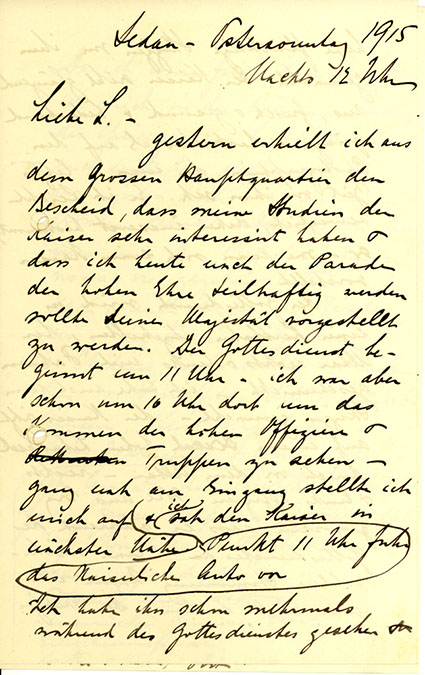 Sedan – Ostersonntag 1915
Nachts 12 Uhr
Liebe L. –
gestern erhielt ich aus
dem Grossen Hauptquartier den
Bescheid, dass meine Studien den
Kaiser sehr interessirt haben &
dass ich heute nach der Parade
der hohen Ehre teilhaftig werden
sollte seiner Majestät vorgestellt
zu werden. Der Gottesdienst be-
ginnt um 11 Uhr – ich war aber
schon um 10 Uhr dort um das
Kommen der hohen Offiziere &
Truppen zu sehen –
ganz nah am Eingang stellte ich
mich auf & ich sah den Kaiser in
nächster Nähe Punkt 11 Uhr fuhr
das Kaiserliche Auto vor
Ich habe ihn schon mehrmals
während des Gottesdienstes gesehen